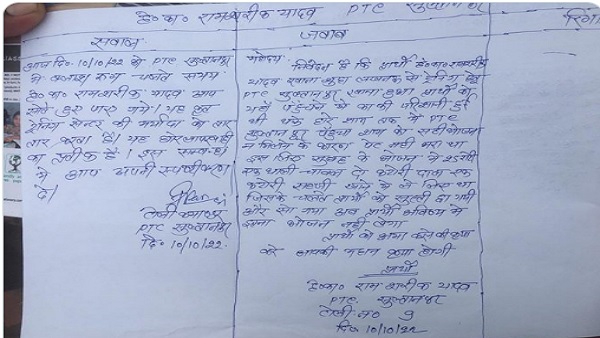 हे०का० रामशरीक यादव PTC सुल्तानपुर
सवाल
आज दि० 10/10/22 को PTC सुल्तानपुर
में क्लास रूम चलते समय
हे०का० रामशरीक यादव आप
सोते हुए पाए गये। यह एक
ट्रेनिंग सेन्टर की मर्यादा को तार
तार करता है। यह घोर लापरवाही
का प्रतीक है। इस सम्बन्ध
में आप अपनी स्पष्टीकरण
दें।
टोली कमाण्डर
PTC सुल्तानपुर
दि० 10/10/22.
जवाब
महोदय
निवेदन है कि प्रार्थी हे०का० रामशरीक
यादव लखनऊ से ट्रेनिंग हेतु
PTC सुल्तानपुर रवाना हुआ प्रार्थी को
यहाँ पहुंचने में काफी परेशानी हुई
थी थके हारे शाम तक में PTC
सुल्तानपुर पहुंचा शाम को सही भोजन
न मिलने के कारण पेट नहीं भरा था
इस लिए सुबह के भोजन में 25 रोटी
एक थाली चावल दो कटोरी दाल एक
कटोरी सब्जी खाने में ले लिया था
जिसके चलते प्रार्थी को सुस्ती आ गयी
और सो गया अब प्रार्थी भविष्य में
इतना भोजन नहीं लेगा
प्रार्थी को क्षमा करने की कृपा
करें आपकी महान कृपा होगी
प्रार्थी
हे०का० राम शरीक यादव
PTC सुल्तानपुर
टोली न० 9
दि० 10/10/22